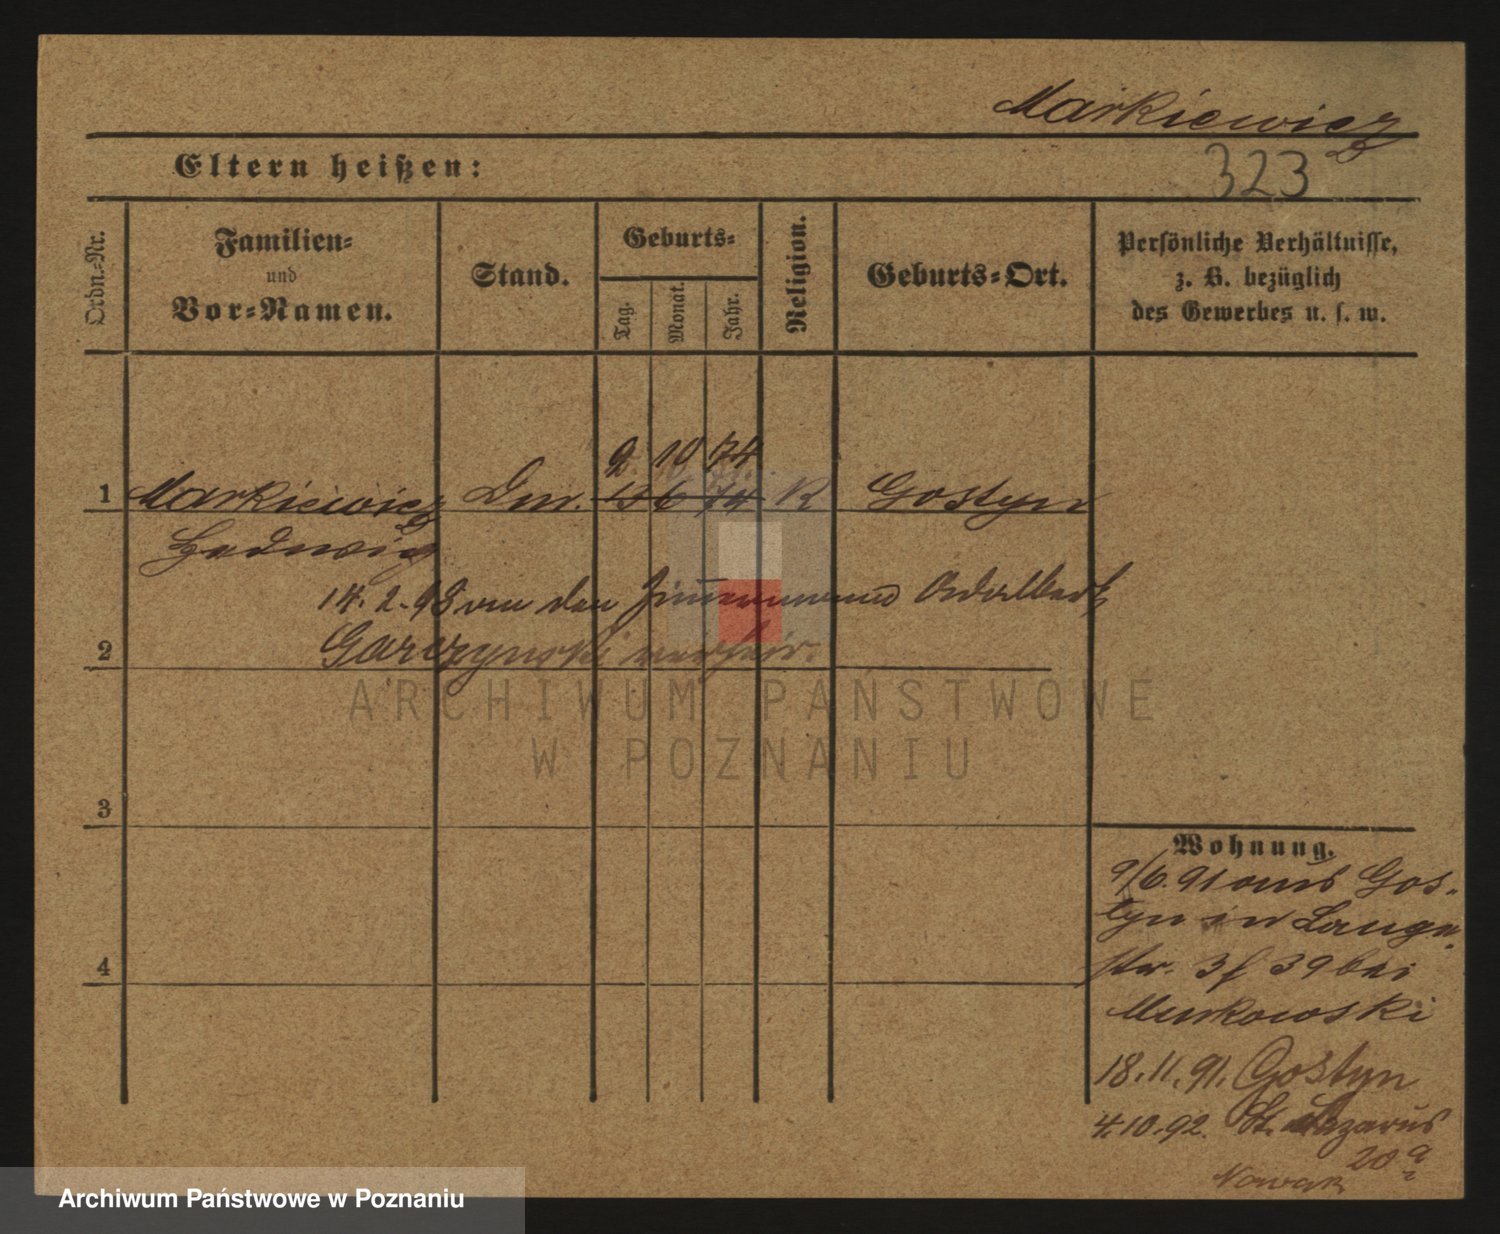 Markiewicz
Eltern heißen:
323
Ordn.-Nr.
Familien-
und
Vor-Namen.
Stand.
Geburts-
Tag.
Monat.
Jahr.
Religion.
Geburts-Ort.
Persönliche Verhältnisse,
z. B. bezüglich
des Gewerbes u. s. w.
9 10 74
1 Markiewicz 15 6 74 K Gostyn
Hedwig
14. 2. 98 an den Zimmermann Adalbert
2 Garczynski verheir.
ARCHIWUM PAŃSTWOWE
W POZNANIU
3
Wohnung.
9/6. 91 aus Gos-
tyn in Lange-
4
str. 3 f 39 bei
Murkowski
18. 11. 91. Gostyn
4. 10. 92. St. Lazarus
20a
Nowak
Archiwum Państwowe w Poznaniu